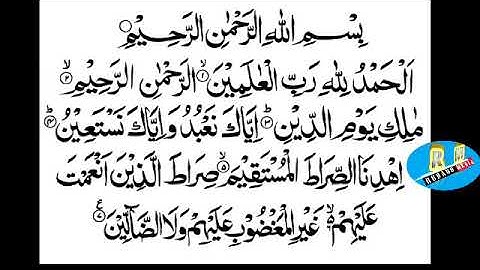 بِسْمِ اللهِ الرَّحْمٰنِ الرَّحِيْمِ
اَلْحَمْدُ لِلهِ رَبِّ الْعٰلَمِيْنَ ۙ﴿۱﴾ الرَّحْمٰنِ الرَّحِيْمِ ۙ﴿۲﴾
مٰلِكِ يَوْمِ الدِّيْنِ ؕ﴿۳﴾ اِيَّاكَ نَعْبُدُ وَاِيَّاكَ نَسْتَعِيْنُ ؕ﴿۴﴾
اِهْدِنَا الصِّرَاطَ الْمُسْتَقِيْمَ ۙ﴿۵﴾ صِرَاطَ الَّذِيْنَ اَنْعَمْتَ
عَلَيْهِمْ ۙ۬﴿۶﴾ غَيْرِ الْمَغْضُوْبِ عَلَيْهِمْ وَلَا الضَّآلِّيْنَ ﴿۷﴾